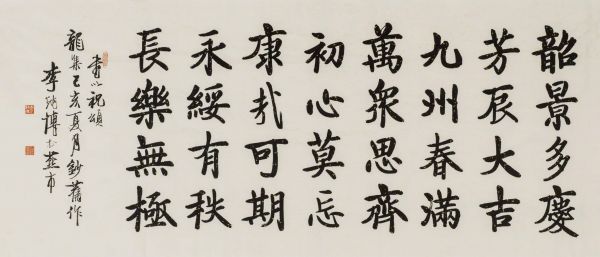 韶景多慶
芳辰大吉
九州春滿
萬衆思齊
初心莫忘
康哉可期
永綏有秩
長樂無極
書以祝頌
龍集己亥夏月鈔舊作
李